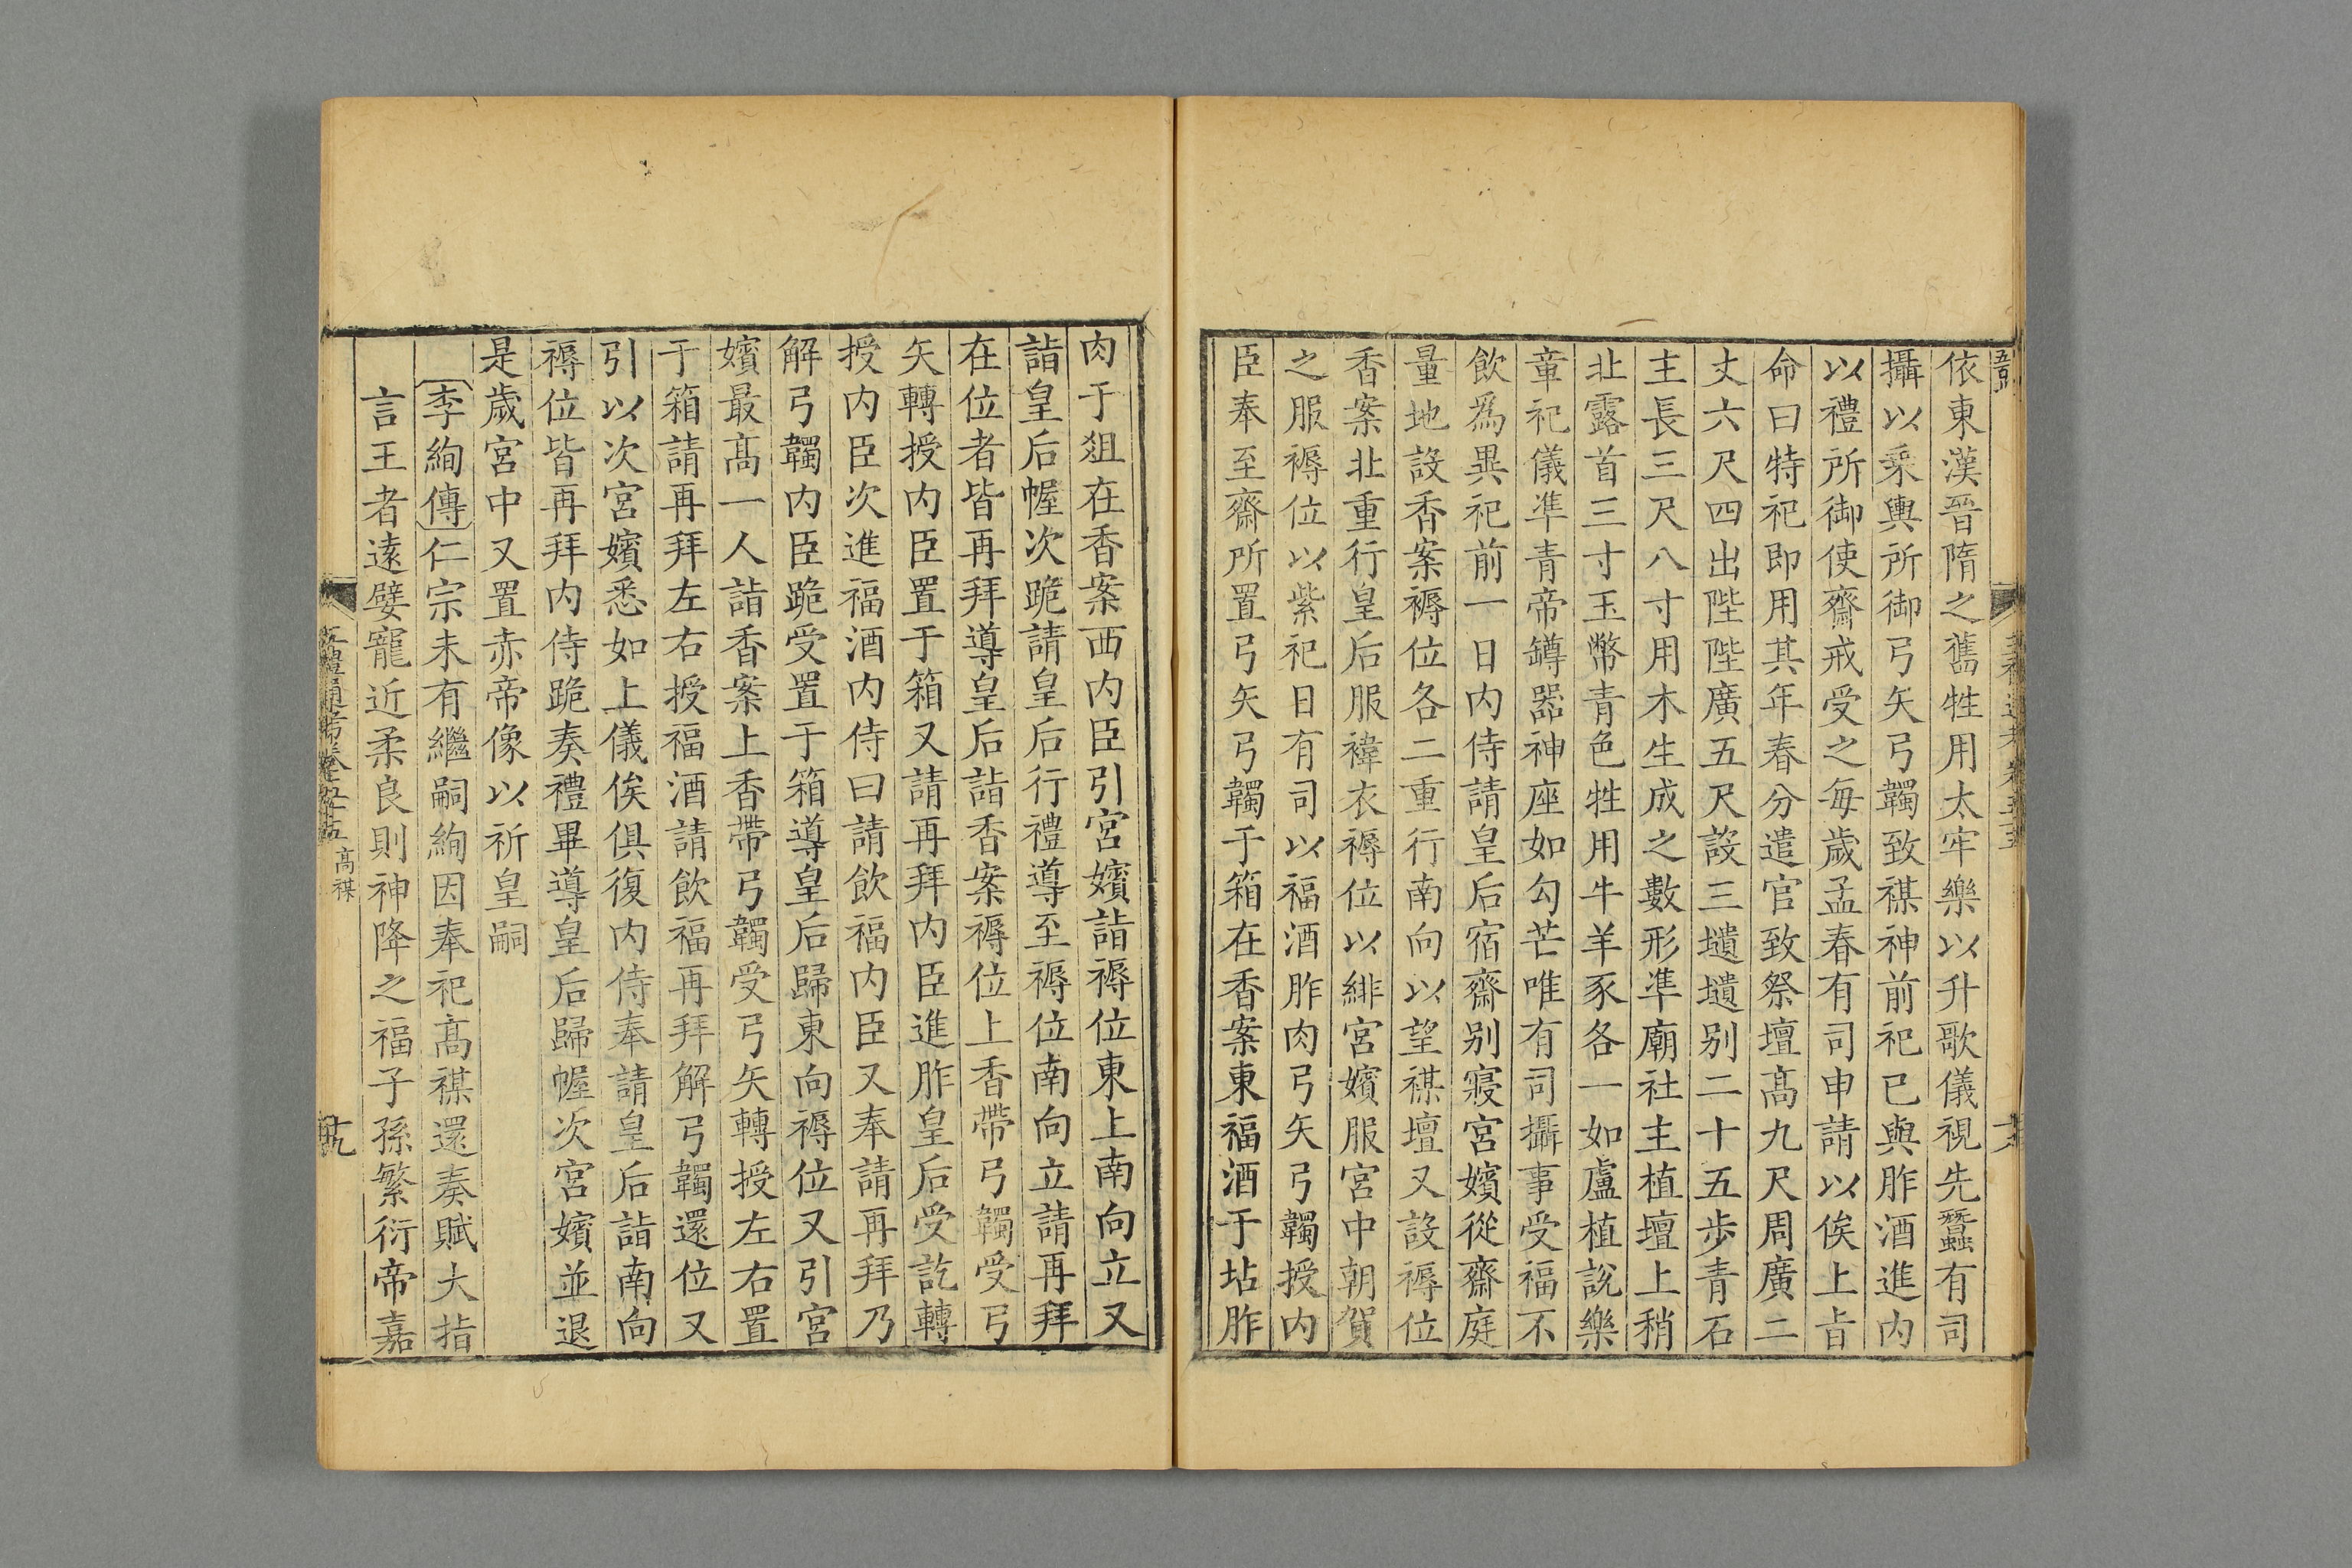 依東漢晉隋之舊牲用太牢樂以升歌儀視先蠶有司
攝以乘輿所御弓矢弓韣致禖神前祀已與胙酒進内
以禮所御使齋戒受之每歲孟春有司申請以俟上旨
命曰特祀即用其年春分遣官致祭壇髙九尺周廣二
丈六尺四出陛陛廣五尺設三壝壝别二十五歩青石
主長三尺八寸用木生成之數形凖廟社主植壇上稍
北露首三寸玉幣青色牲用牛羊豕各一如盧植說樂
章祀儀凖青帝罇器神座如勾芒唯有司攝事受福不
飲爲異祀前一日内侍請皇后宿齋别寢宮嬪從齋庭
量地設香案褥位各二重行南向以望禖壇又設褥位
香案北重行皇后服褘衣褥位以緋宮嬪服宮中朝賀
之服褥位以紫祀日有司以福酒胙肉弓矢弓韣授内
臣奉至齋所置弓矢弓韣于箱在香案東福酒于坫胙
肉于俎在香案西内臣引宮嬪詣褥位東上南向立又
詣皇后幄次跪請皇后行禮導至褥位南向立請再拜
在位者皆再拜導皇后詣香案褥位上香帶弓韣受弓
矢轉授内臣置于箱又請再拜内臣進胙皇后受訖轉
授内臣次進福酒内侍曰請飲福内臣又奉請再拜乃
解弓韣内臣跪受置于箱導皇后歸東向褥位又引宮
嬪最髙一人詣香案上香帶弓韣受弓矢轉授左右置
于箱請再拜左右授福酒請飲福再拜解弓韣還位又
引以次宮嬪悉如上儀俟俱復内侍奉請皇后詣南向
褥位皆再拜内侍跪奏禮畢導皇后歸幄次宮嬪並退
是歲宮中又置赤帝像以祈皇嗣
李絢傳仁宗未有繼嗣絢因奉祀髙禖還奏賦大指
言王者遠嬖寵近柔良則神降之福子孫繁衍帝嘉
五禮通考卷五十五
髙禖
十九